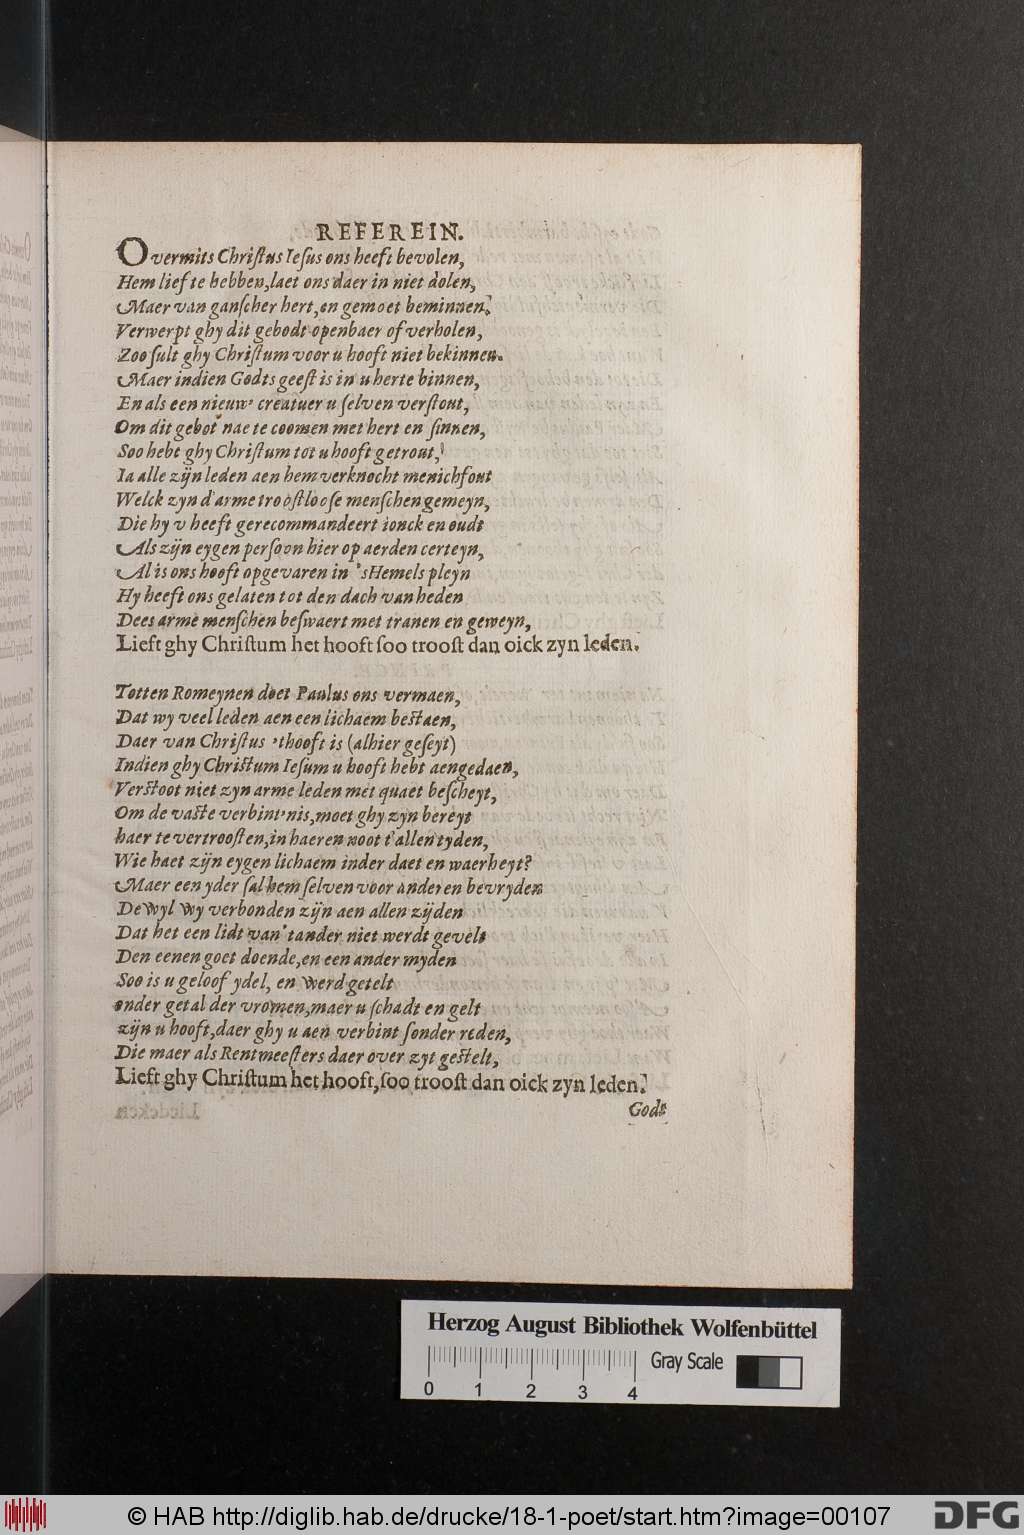 REFEREIN.
Overmits Chriſtus Ieſus ons heeft bevolen,
Hem lief te hebben,laet ons daer in niet dolen,
Maer van ganſcher hert,en gemoet beminnen.
Verwerpt ghy dit gebodt openbaer of verholen,
Zoo ſult ghy Chriſtum voor u hooft niet bekinnen.
Maer indien Godts geeſt is in u herte binnen,
En als een nieuw' creatuer u ſelven verſtout,
Om dit gebot nae te coomen met hert en ſinnen,
Soo hebt ghy Chriſtum tot u hooft getrout,
Ia alle zijn leden aen hem verknocht menichfout
Welck zyn d'arme trooſtlooſe menſchen gemeyn,
Die hy v heeft gerecommandeert ionck en oudt
Als zijn eygen perſoon hier op aerden certeyn,
Al is ons hooft opgevaren in 'sHemels pleyn
Hy heeft ons gelaten tot den dach van heden
Dees arme menſchen beſwaert met tranen en geweyn,
Lieft ghy Chriſtum het hooft ſoo trooſt dan oick zyn leden.
Totten Romeynen doet Paulus ons vermaen,
Dat wy veel leden aen een lichaem beſtaen,
Daer van Chriſtus 'thooft is (alhier geſeyt)
Indien ghy Chriſtum Ieſum u hooft hebt aengedaen,
Verſtoot niet zyn arme leden met quaet beſcheyt,
Om de vaſte verbint'nis,moet ghy zyn bereyt
haer te vertrooſten,in haeren noot t'allen tyden,
Wie haet zijn eygen lichaem inder daet en waerheyt?
Maer een yder ſal hem ſelven voor anderen bevryden
De wyl wy verbonden zijn aen allen zijden
Dat het een lidt van 'tander niet werdt gevelt
Den eenen goet doende,en een ander myden
Soo is u geloof ydel, en werd getelt
onder getal der vromen,maer u ſchadt en gelt
zijn u hooft,daer ghy u aen verbint ſonder reden,
Die maer als Rentmeeſters daer over zyt geſtelt,
Lieft ghy Chriſtum het hooft,ſoo trooſt dan oick zyn leden.
Godt
Herzog August Bibliothek Wolfenbüttel
Gray Scale
0 1 2 3 4
© HAB http://diglib.hab.de/drucke/18-1-poet/start.htm?image=00107
DFG